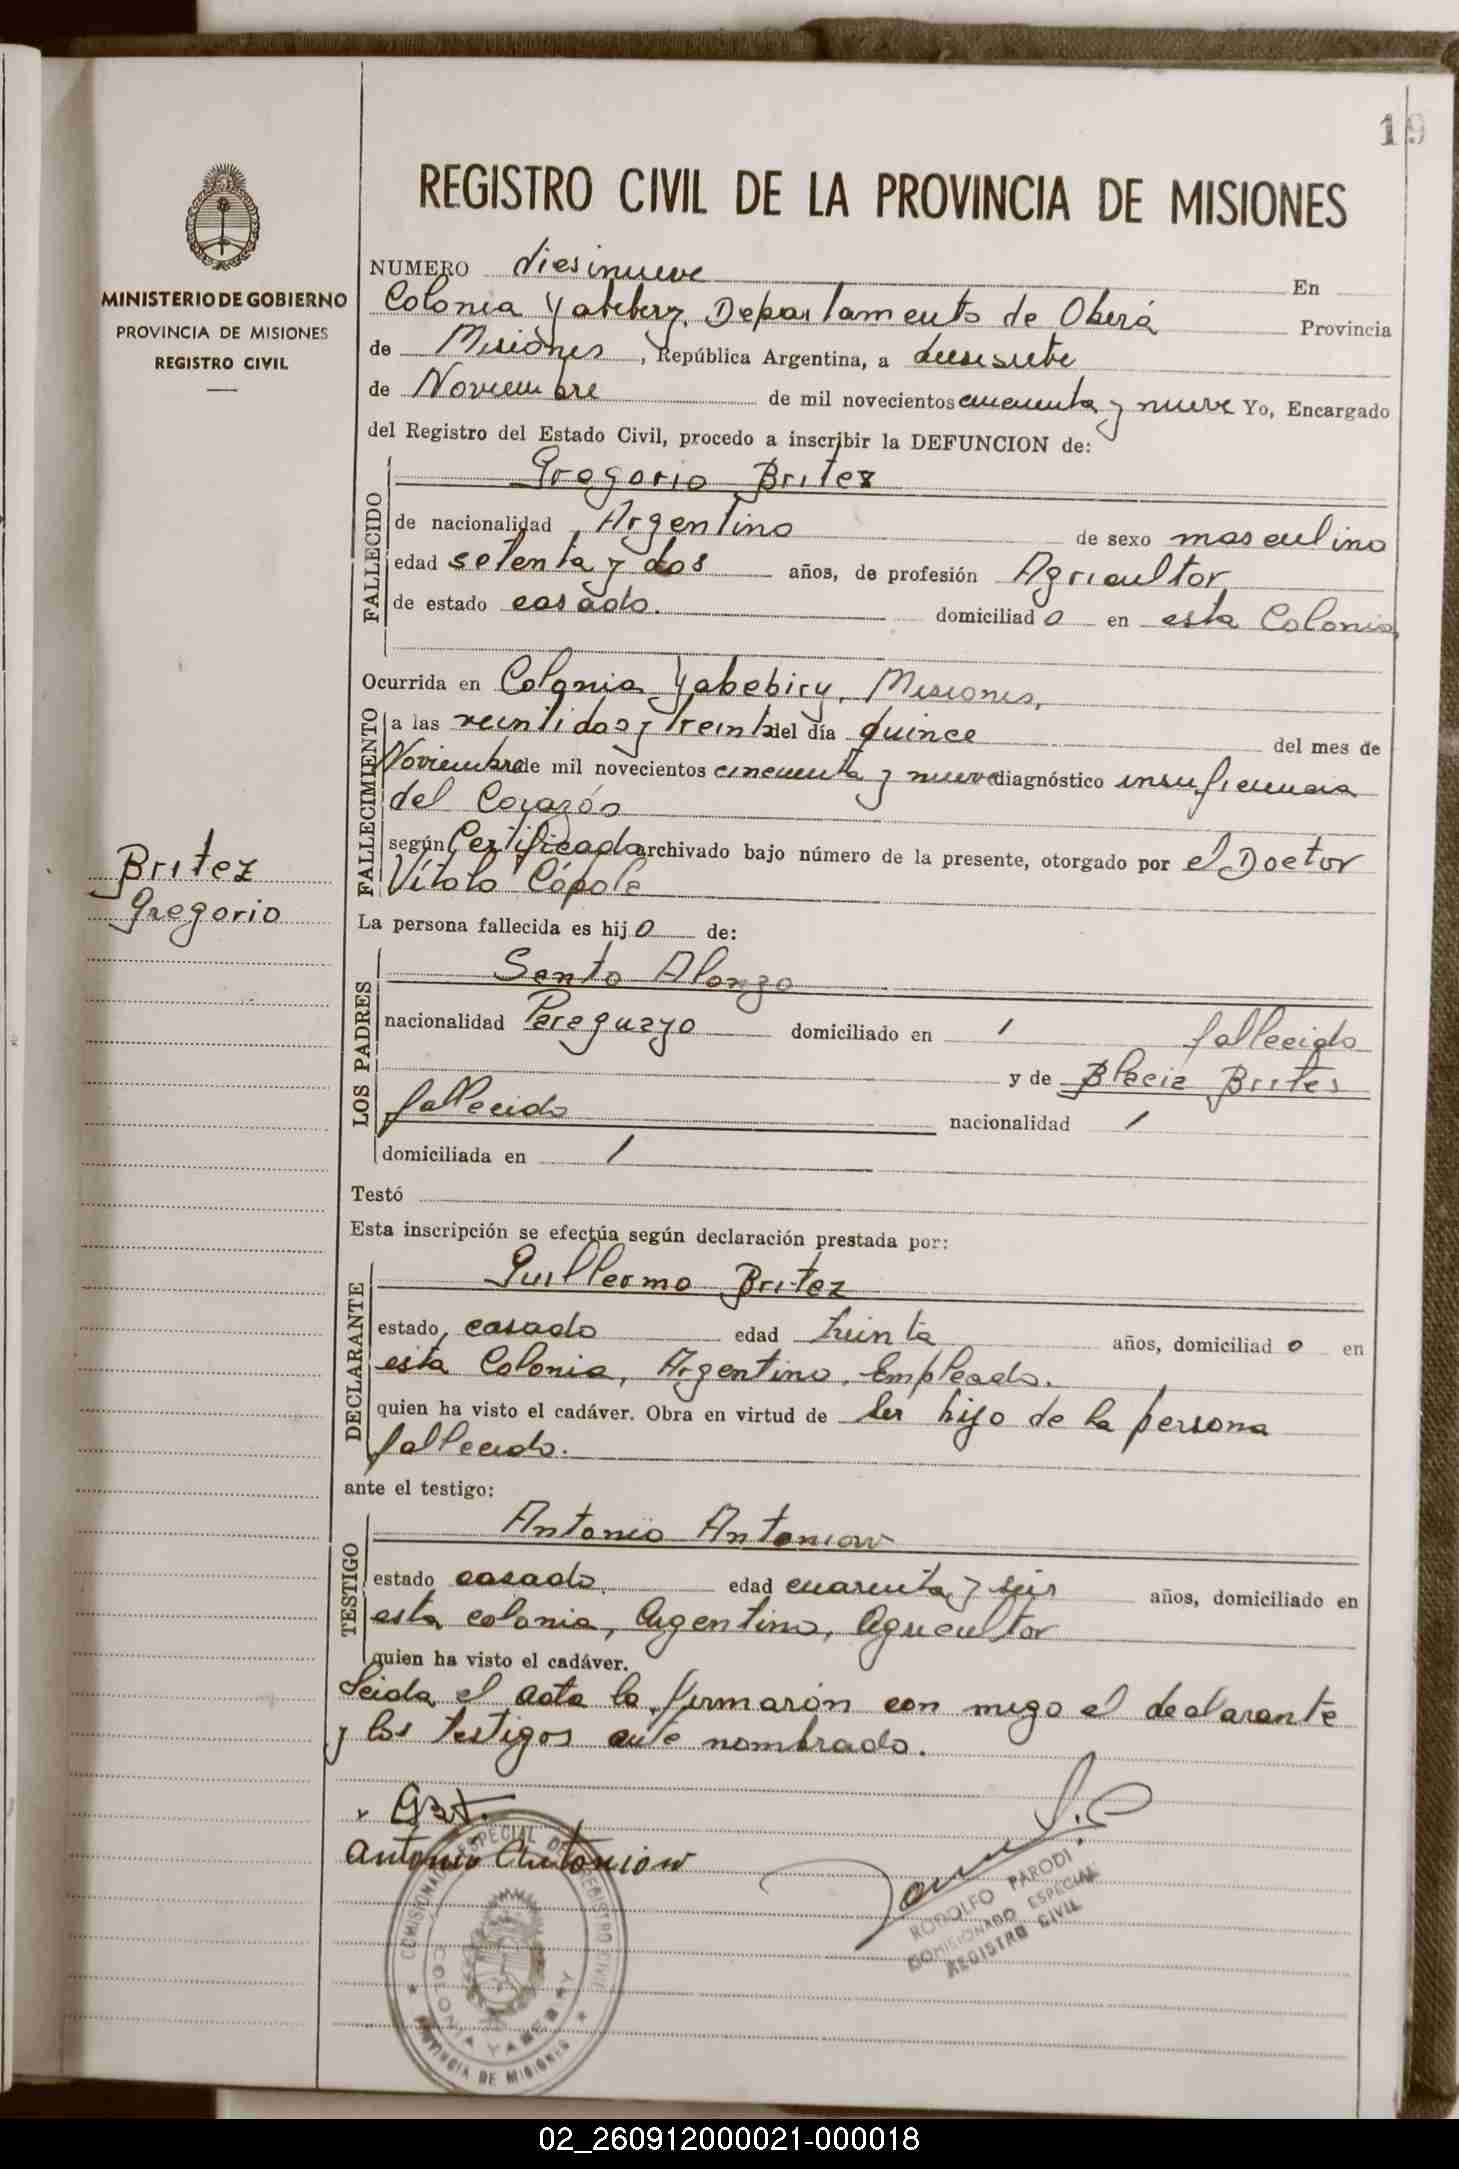 19
REGISTRO CIVIL DE LA PROVINCIA DE MISIONES
MINISTERIO DE GOBIERNO
PROVINCIA DE MISIONES
REGISTRO CIVIL
NUMERO diesinueve En
Colonia Yabebiry, Departamento de Oberá Provincia
de Misiones, República Argentina, a
de Noviembre de mil novecientos cincuenta y nueve Yo, Encargado
del Registro del Estado Civil, procedo a inscribir la DEFUNCION de:
Gregorio Britez
FALLECIDO
de nacionalidad Argentino de sexo masculino
edad setenta y dos años, de profesión Agricultor
de estado casado. domiciliado en esta Colonia,
Ocurrida en Colonia Yabebiry, Misiones,
FALLECIMIENTO
a las veintidos y treinta del día quince del mes de
Noviembre de mil novecientos cincuenta y nueve diagnóstico insuficiencia
del Corazón
según Certificado archivado bajo número de la presente, otorgado por el Doctor
Vítolo Cópola
Britez
Gregorio
La persona fallecida es hijo de:
LOS PADRES
Santo Alonzo
nacionalidad Paraguayo domiciliado en / fallecido
y de Blacia Brites
fallecida nacionalidad /
domiciliada en /
Testó
Esta inscripción se efectúa según declaración prestada por:
DECLARANTE
Guillermo Britez
estado, casado edad treinta años, domiciliado en
esta Colonia, Argentino, Empleado.
quien ha visto el cadáver. Obra en virtud de ser hijo de la persona
fallecido.
ante el testigo:
TESTIGO
Antonio Antoniow
estado casado, edad cuarenta y seis años, domiciliado en
esta colonia, Argentino, Agricultor
quien ha visto el cadáver.
Leida el acta la firmarón con migo el declarante
y los testigos ante nombrado.
Antonio Antoniow
COMISIONADO ESPECIAL DEL REGISTRO CIVIL
COLONIA YABEBIRY
PROVINCIA DE MISIONES
RODOLFO PARODI
COMISIONADO ESPECIAL
REGISTRO CIVIL
02_260912000021-000018